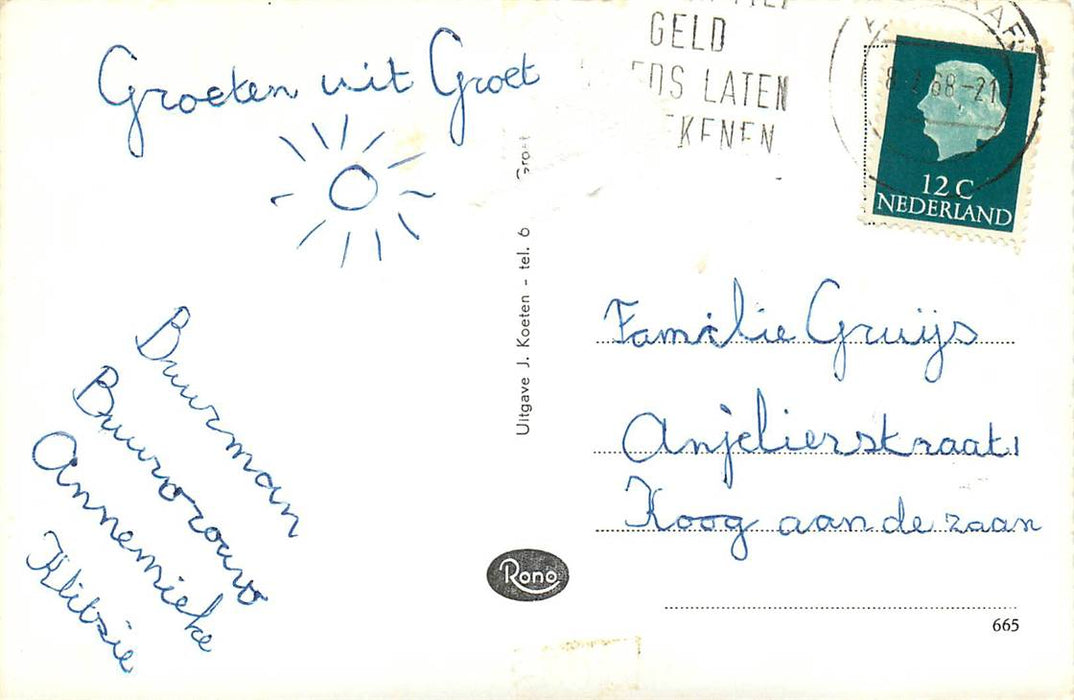 Groeten uit Groet
Buurman
Buurvrouw
Annemieke
Klitsie
Uitgave J. Koeten - tel. 6 Groet
Rono
GELD
LATEN
8 68 -21
12 C
NEDERLAND
Familie Gruijs
Anjelierstraat 1
Koog aan de zaan
665